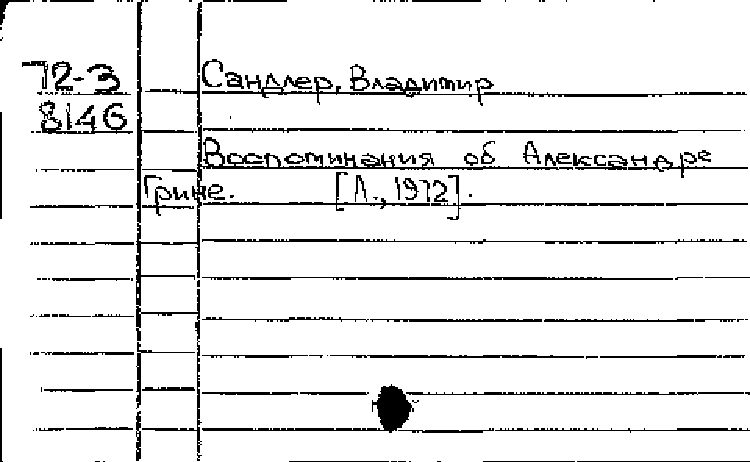 72-3 Сандлер, Владимир
8146
Воспоминания об Александре
Грине. [Л., 1972].